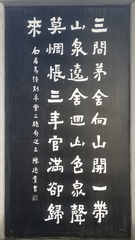 三間茅舍向山開一帶
山泉遶舍迴山色泉聲
莫惆悵三年官滿卻歸
來
白居易詩別草堂三絕句之三 陳
書